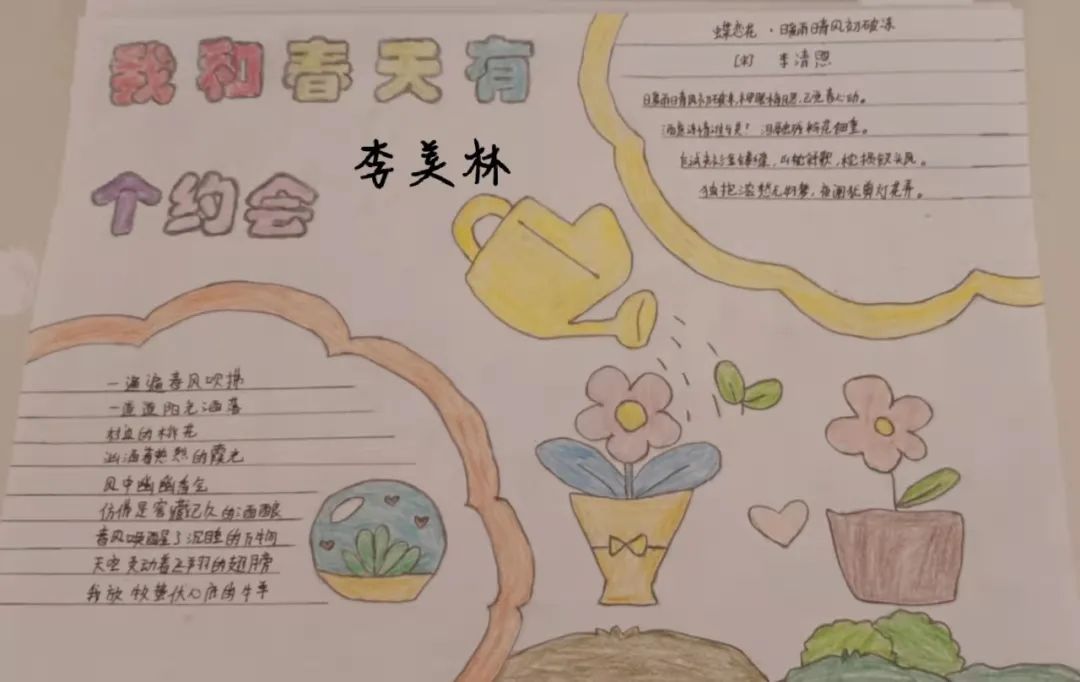 我和春天有
个约会
李美林
蝶恋花·日暖雨晴风初破冻
[宋] 李清照
日暖雨晴风初破冻,柳眼梅腮,已觉春心动。
酒意诗情谁与共?泪融残粉花钿重。
乍试夹衫金缕缝,山枕斜歌,枕损钗头凤。
独抱浓愁无好梦,夜阑犹剪灯花弄。
一遍遍春风吹拂
一道道阳光洒落
村庄的桃花
汹涌着热烈的霞光
风中幽幽香气
仿佛是窖藏已久的酒酿
春风唤醒了沉睡的万物
天空灵动着飞翔的翅膀
我放牧蛰伏心底的牛羊